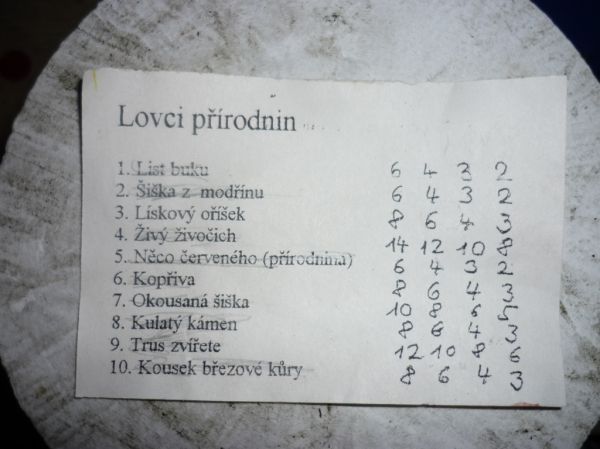 Lovci přírodnin
1. List buku 6 4 3 2
2. Šiška z modřínu 6 4 3 2
3. Lískový oříšek 8 6 4 3
4. Živý živočich 14 12 10 8
5. Něco červeného (přírodnina) 6 4 3 2
6. Kopřiva 8 6 4 3
7. Okousaná šiška 10 8 6 5
8. Kulatý kámen 8 6 4 3
9. Trus zvířete 12 10 8 6
10. Kousek březové kůry 8 6 4 3